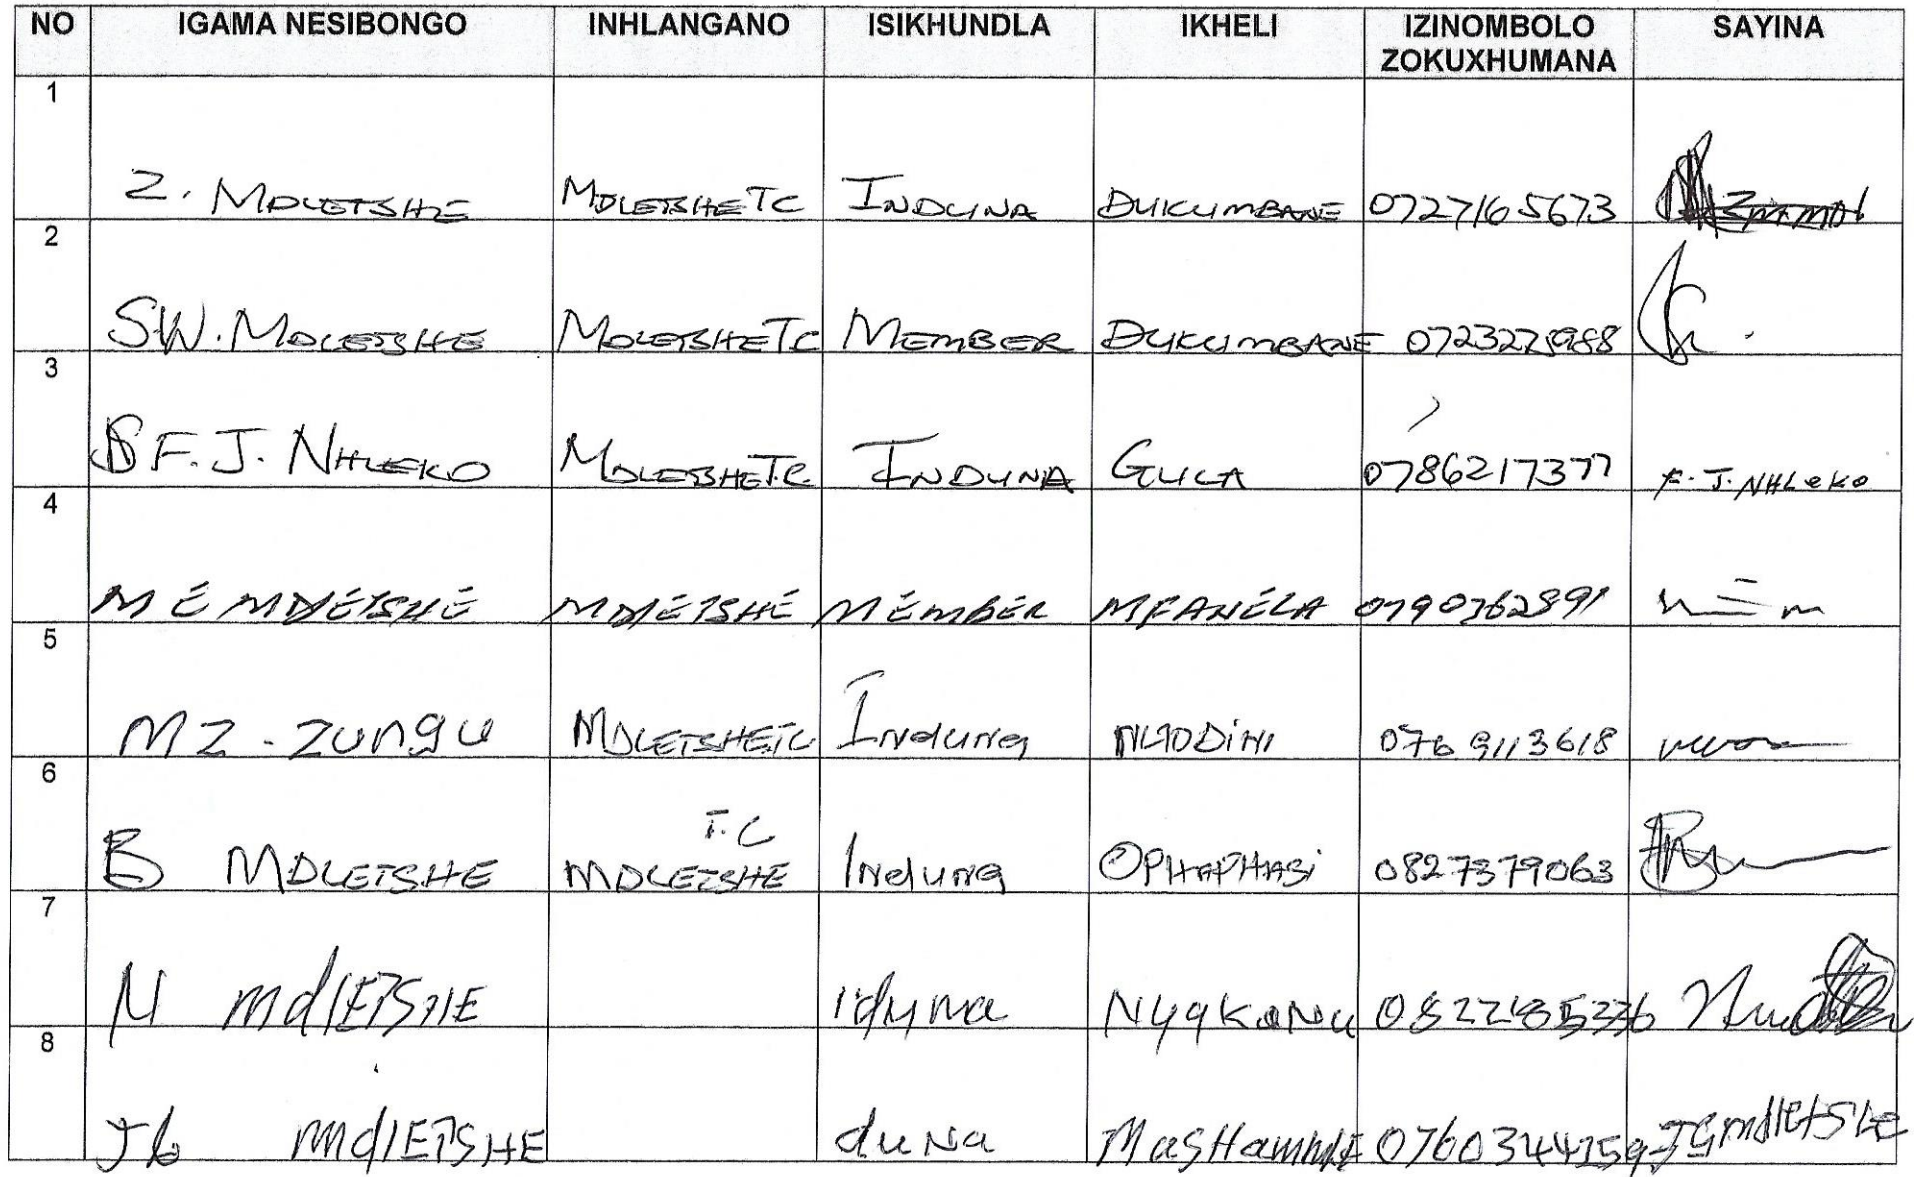 NO IGAMA NESIBONGO INHLANGANO ISIKHUNDLA IKHELI IZINOMBOLO ZOKUXHUMANA SAYINA
1 Z. MDLETSHE MDLETSHE TC INDUNA DUKUMBANE 0727165673
2 SW. MDLETSHE MDLETSHE TC MEMBER DUKUMBANE
3 F.J. NHLEKO MDLETSHE T.C. INDUNA GULA 0786217377 F.J. NHLeKo
4 M E MDLETSHE MDLETSHE MEMBER MFANELA 0790362891
5 MZ. ZUNGU MDLETSHE TC Induna 0769113618
6 B MDLETSHE MDLETSHE T.C Induna OPHAPHASi 0827379063
7 N mdlETSHE iduna NyaKaNu
8 JG mdlETSHE duNa JGmdletshe